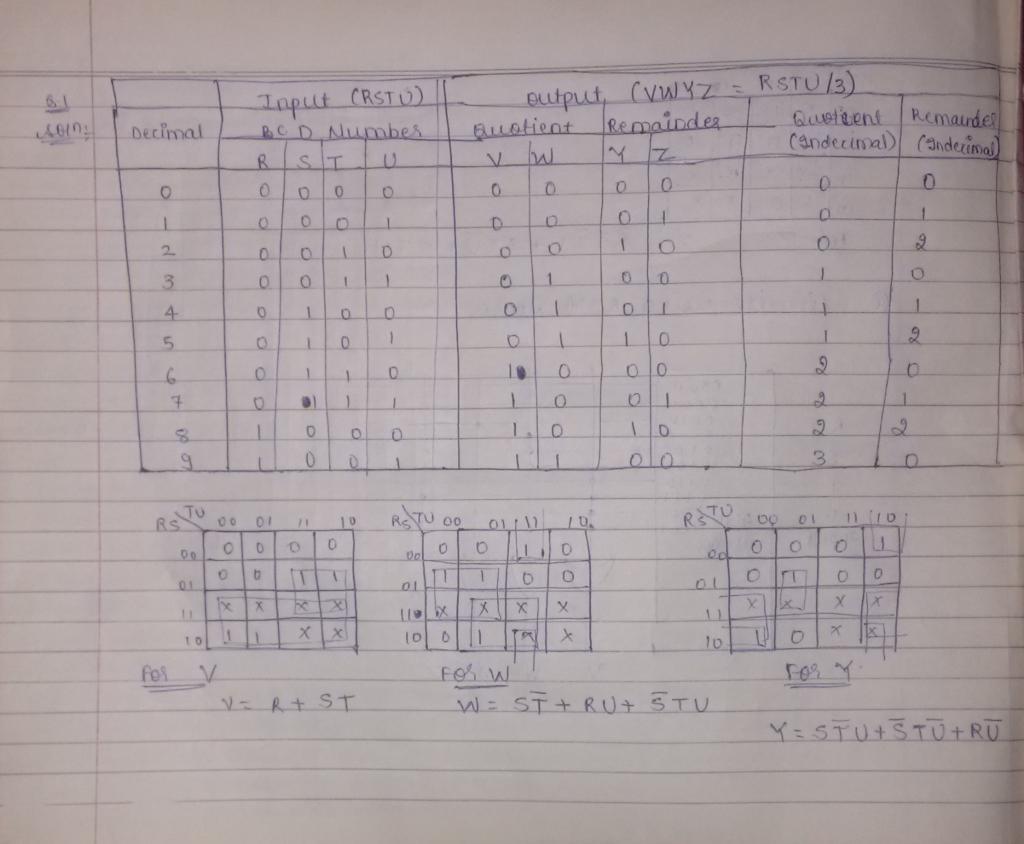 Q.1 Input (RSTU) Output (VWYZ = RSTU/3)
Soln:- Decimal BCD Number Quotient Remainder Quotient (Indecimal) Remainder (Indecimal)
R S T U V W Y Z
0 0 0 0 0 0 0 0 0 0 0
1 0 0 0 1 0 0 0 1 0 1
2 0 0 1 0 0 0 1 0 0 2
3 0 0 1 1 0 1 0 0 1 0
4 0 1 0 0 0 1 0 1 1 1
5 0 1 0 1 0 1 1 0 1 2
6 0 1 1 0 1 0 0 0 2 0
7 0 1 1 1 1 0 0 1 2 1
8 1 0 0 0 1 0 1 0 2 2
9 1 0 0 1 1 1 0 0 3 0
RS TU 00 01 11 10
00 0 0 0 0
01 0 0 1 1
11 x x x x
10 1 1 x x
For V
V = R + ST
RS TU 00 01 11 10
00 0 0 1 0
01 1 1 0 0
11 x x x x
10 0 1 x x
For W
W = ST̅ + RU + S̅TU
RS TU 00 01 11 10
00 0 0 0 1
01 0 1 0 0
11 x x x x
10 1 0 x x
For Y
Y = ST̅U + S̅TU̅ + RU̅